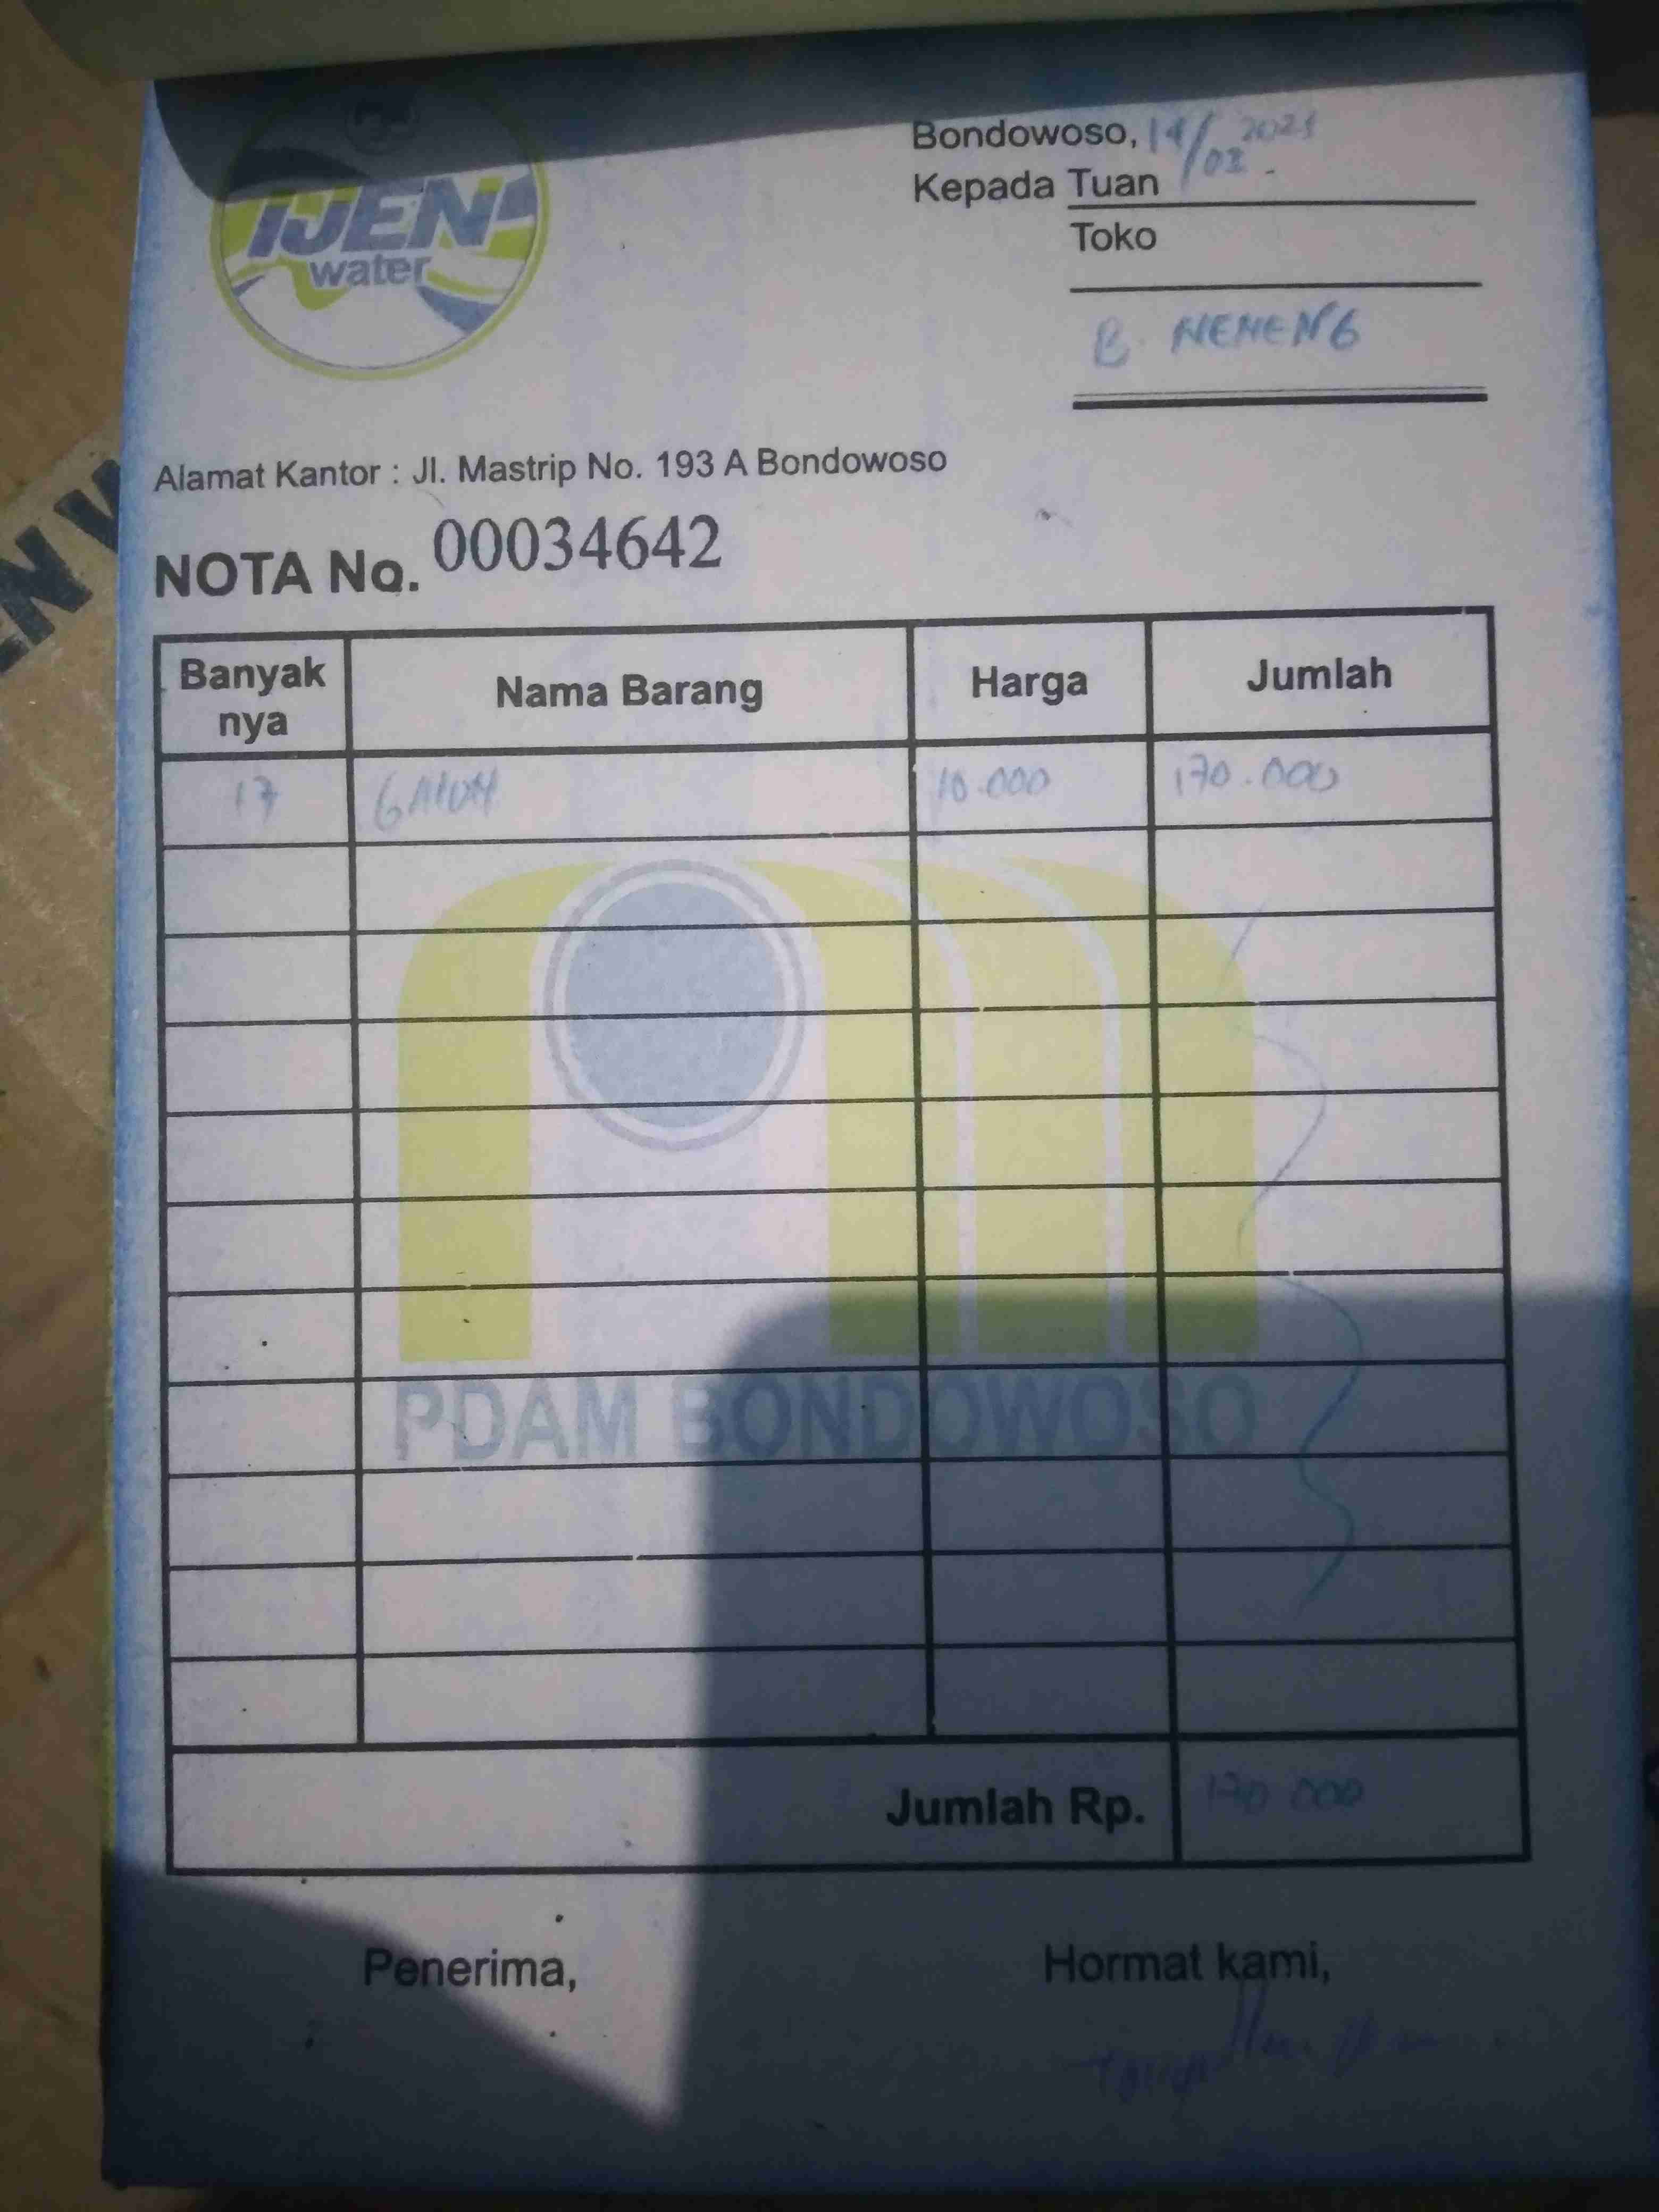 IJEN
water
Bondowoso, 14/02 2021
Kepada Tuan
Toko
B. NENENG
Alamat Kantor : Jl. Mastrip No. 193 A Bondowoso
NOTA No. 00034642
Banyak nya Nama Barang Harga Jumlah
17 GAlON 10.000 170.000
PDAM BONDOWOSO
Jumlah Rp. 170 000
Penerima, Hormat kami,